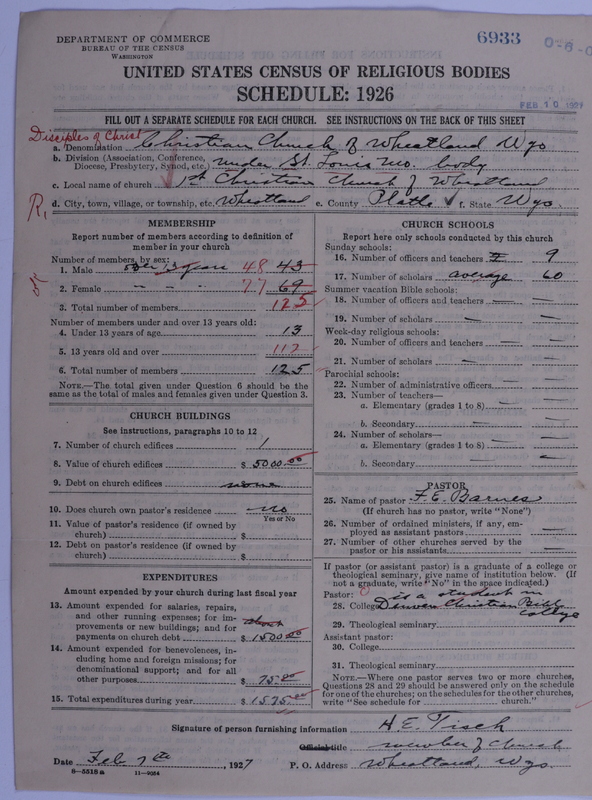 DEPARTMENT OF COMMERCE
BUREAU OF THE CENSUS
WASHINGTON
6933
UNITED STATES CENSUS OF RELIGIOUS BODIES
SCHEDULE: 1926
FILL OUT A SEPARATE SCHEDULE FOR EACH CHURCH. SEE INSTRUCTIONS ON THE BACK OF THIS SHEET
Disciples of Christ
a. Denomination Christian Church of Wheatland Wyo
b. Division (Association, Conference, Diocese, Presbytery, Synod, etc.) under St. Louis Mo. body
c. Local name of church 1st Christian Church of Wheatland
d. City, town, village, or township, etc. Wheatland e. County Platte f. State Wyo.
MEMBERSHIP
Report number of members according to definition of
member in your church
Number of members, by sex:
1. Male over 13 years 48 43
2. Female " " " 77 69
3. Total number of members 125
Number of members under and over 13 years old:
4. Under 13 years of age 13
5. 13 years old and over 112
6. Total number of members 125
NOTE.—The total given under Question 6 should be the
same as the total of males and females given under Question 3.
CHURCH BUILDINGS
See instructions, paragraphs 10 to 12
7. Number of church edifices 1
8. Value of church edifices $ 5000.00
9. Debt on church edifices none
10. Does church own pastor's residence No
Yes or No
11. Value of pastor's residence (if owned by
church) $
12. Debt on pastor's residence (if owned by
church) $
EXPENDITURES
Amount expended by your church during last fiscal year
13. Amount expended for salaries, repairs,
and other running expenses; for im-
provements or new buildings; and for about
payments on church debt $ 1500.00
14. Amount expended for benevolences, in-
cluding home and foreign missions; for
denominational support; and for all
other purposes $ 75.00
15. Total expenditures during year $ 1575.00
CHURCH SCHOOLS
Report here only schools conducted by this church
Sunday schools:
16. Number of officers and teachers 9
17. Number of scholars average 60
Summer vacation Bible schools:
18. Number of officers and teachers
19. Number of scholars
Week-day religious schools:
20. Number of officers and teachers
21. Number of scholars
Parochial schools:
22. Number of administrative officers
23. Number of teachers—
a. Elementary (grades 1 to 8)
b. Secondary
24. Number of scholars—
a. Elementary (grades 1 to 8)
b. Secondary
PASTOR
25. Name of pastor F. E. Barnes
(If church has no pastor, write "None")
26. Number of ordained ministers, if any, em-
ployed as assistant pastors
27. Number of other churches served by the
pastor or his assistants
If pastor (or assistant pastor) is a graduate of a college or
theological seminary, give name of institution below. (If
not a graduate, write "No" in the space indicated.)
Pastor: is a student in
28. College Denver Christian Bible College
29. Theological seminary
Assistant pastor:
30. College
31. Theological seminary
NOTE.—Where one pastor serves two or more churches,
Questions 28 and 29 should be answered only on the schedule
for one of the churches; on the schedules for the other churches,
write "See schedule for church."
Signature of person furnishing information H. E. Tisch
Official title member of church
Date Feb 7th, 1927 P. O. Address Wheatland, Wyo.
8—5518 a 11—9054